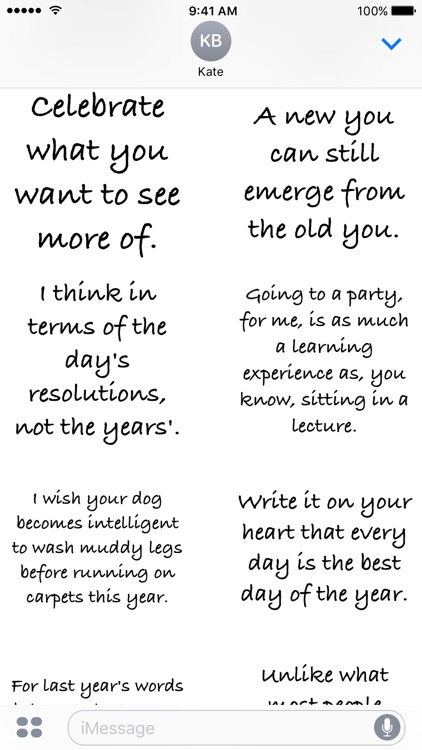 9:41 AM
100%
KB
Kate
Celebrate
what you
want to see
more of.
A new you
can still
emerge from
the old you.
I think in
terms of the
day's
resolutions,
not the years'.
Going to a party,
for me, is as much
a learning
experience as, you
know, sitting in a
lecture.
I wish your dog
becomes intelligent
to wash muddy legs
before running on
carpets this year.
Write it on your
heart that every
day is the best
day of the year.
For last year's words
Unlike what
most people
iMessage